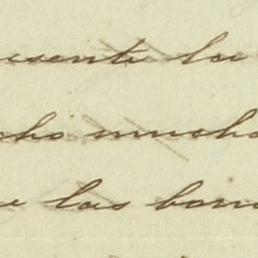 esente los
cho mucho
e las bon